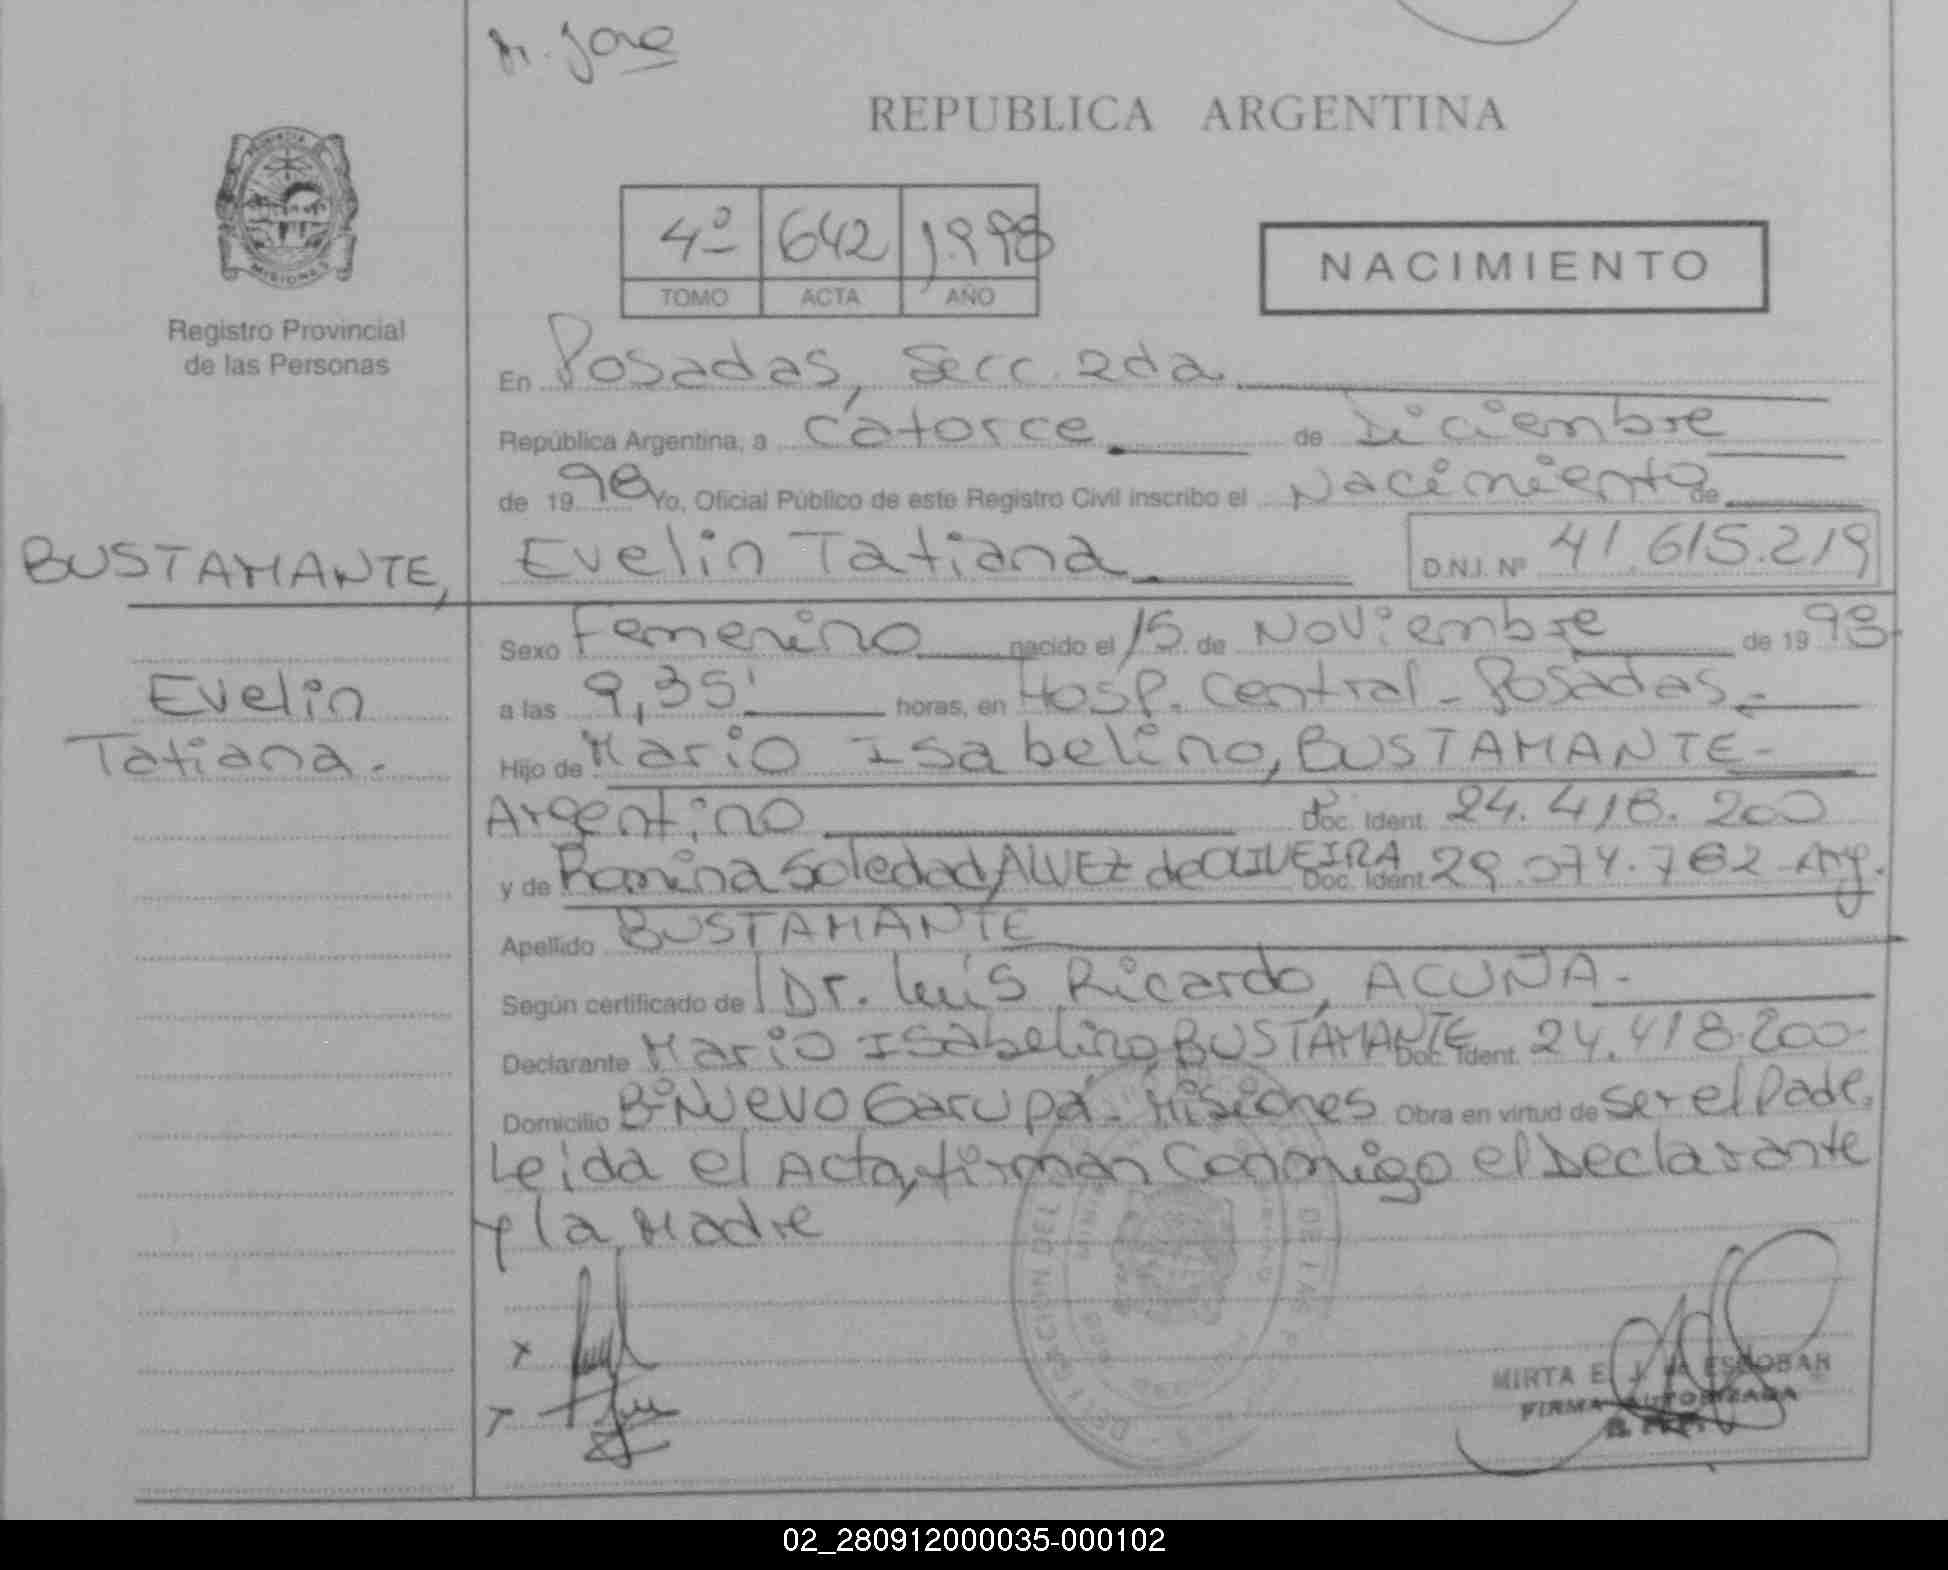 REPUBLICA ARGENTINA
PROVINCIA
MISIONES
4º 642 1.998
TOMO ACTA AÑO
NACIMIENTO
Registro Provincial
de las Personas
En Posadas, Secc. 2da.
República Argentina, a Catorce de Diciembre
de 1998 Yo, Oficial Público de este Registro Civil inscribo el Nacimiento de
BUSTAMANTE, Evelin Tatiana D.N.I. Nº 41.615.219
Evelin
Tatiana.
Sexo Femenino nacido el 15 de Noviembre de 1998
a las 9,35' horas, en Hosp. Central - Posadas.-
Hijo de Mario Isabelino, BUSTAMANTE-
Argentino Doc. Ident. 24.418.200
y de Romina Soledad, ALVEZ de OLIVEIRA Doc. Ident. 29.074.762 Arg.
Apellido BUSTAMANTE
Según certificado de Dr. Luis Ricardo, ACUÑA.-
Declarante Mario Isabelino, BUSTAMANTE Doc. Ident. 24.418.200-
Domicilio Bº Nuevo Garupá - Misiones Obra en virtud de ser el Padre.
Leida el Acta, firman Conmigo el Declarante
y la Madre
MIRTA E. J. de ESCOBAR
FIRMA AUTORIZADA
02_280912000035-000102